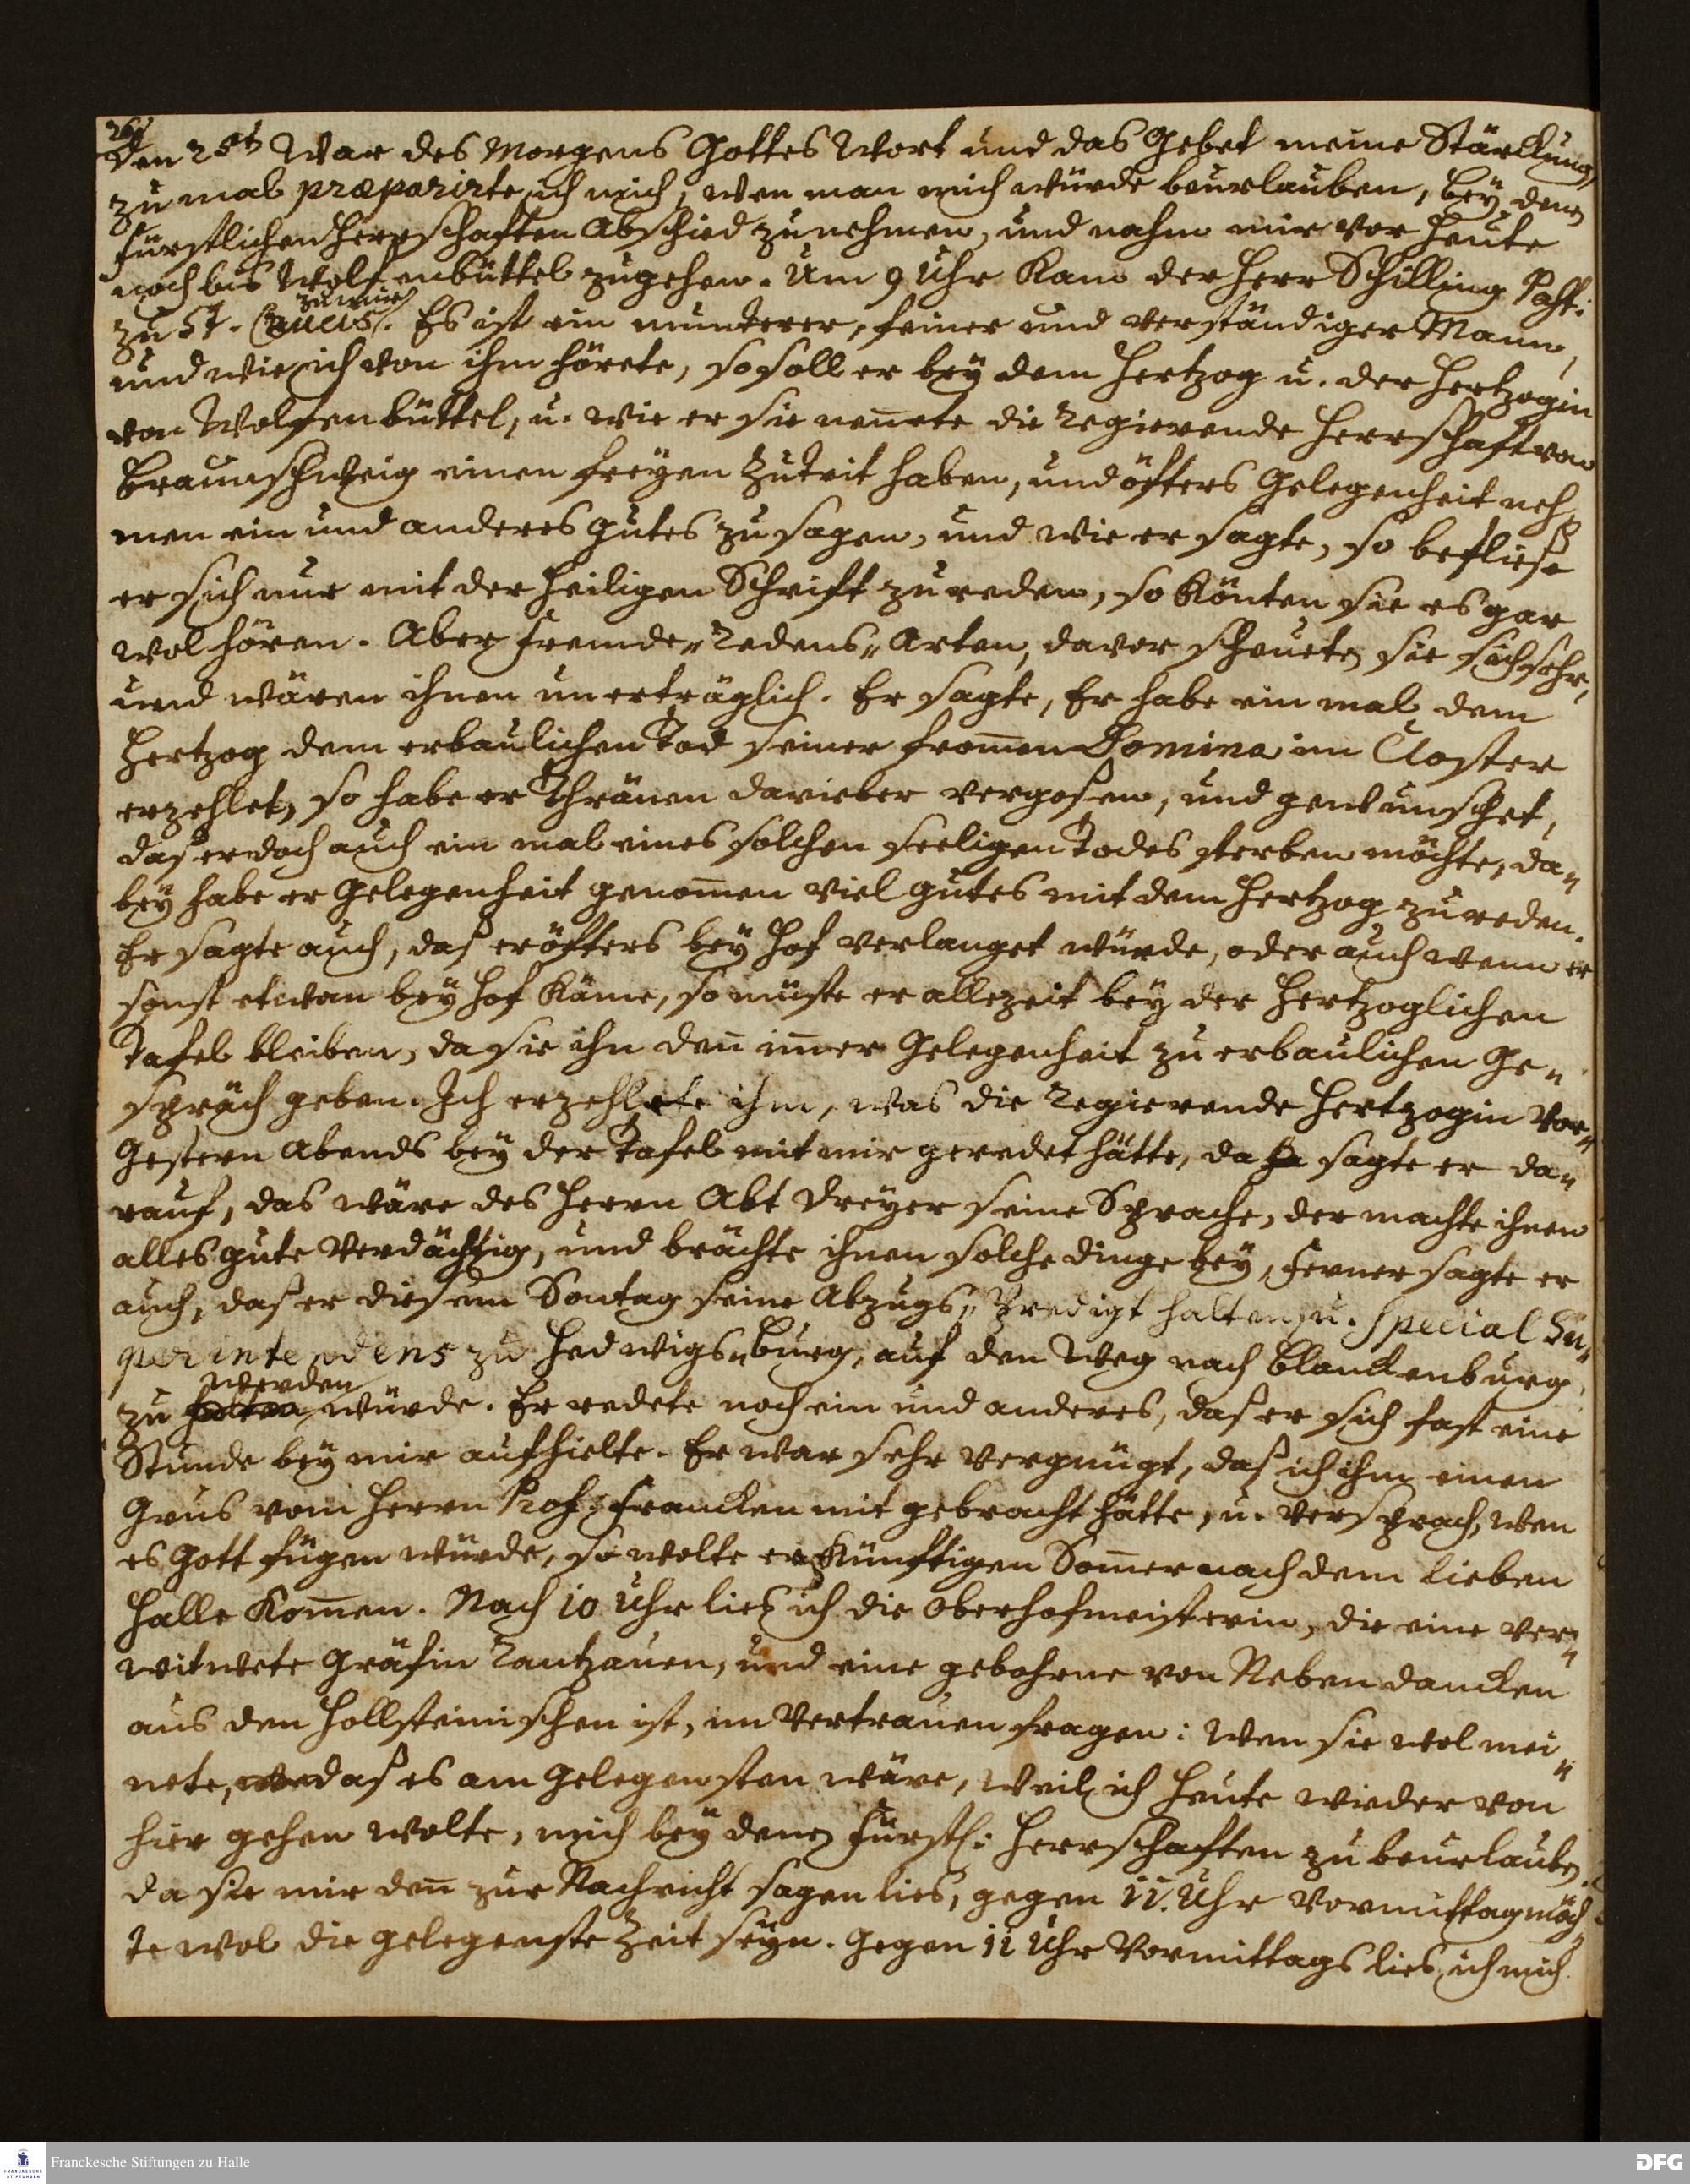 264
Den 28t. War des Morgens Gottes Wort und das Gebet meine Stärckung,
zumal præparirte ich mich, wen man mich würde beurlauben, bey denen
Fürstlichen Herrschaften Abschied zu nehmen, und nahm mir vor heute
noch bis Wolfenbüttel zugehen. Um 9 Uhr Kam der Herr Schilling Past:
zu mir
zu St. Crucis. Es ist ein munterer, feiner und verständiger Mann,
und wie ich von ihm hörete, so soll er bey dem Hertzog u. der Hertzogin
von Wolfenbüttel, u. wie er sie nen̄ete die Regierende Herrschaft von
Braunschweig einen freyen Zutrit haben, und öfters Gelegenheit neh-
men ein und anderes gutes zu sagen, und wie er sagte, so befliese
er sich nur mit der Heiligen Schrift zu reden, so Könten sie es gar
wol hören. Aber fremde Redens„Arten, davor scheueten sie sich sehr,
und wären ihnen unerträglich. Er sagte, Er habe ein mal dem
Hertzog dem erbaulichen Tod seiner from̄en Domina im Closter
erzehlet, so habe er Thränen darieber vergosen, und gewünschet,
das er doch auch ein mal eines solchen seeligen Todes sterben möchte, da„
bey habe er Gelegenheit genom̄en viel gutes mit dem Hertzog zu reden.
Er sagte auch, das er öfters bey Hof verlanget würde, oder auch wenn er
sonst etwan bey Hof Käme, so müste er allezeit bey der Hertzoglichen
Tafel bleiben, da sie ihn den̄ im̄er Gelegenheit zu erbaulichen Ge„
spräch geben. Ich erzehlete ihm, was die Regierende Hertzogin vor„
Gestern Abends bey der Tafel mit mir geredet hätte, da sagte er da„
rauf, das wäre des Herrn Abt Dreyer seine Sprache, der machte ihnen
alles gute verdächtig, und brächte ihnen solche dinge bey, ferner sagte er
auch, das er diesem Sontag seine Abzugs„Predigt halten, u. Special Su„
perintendens zu Hedwigs„Burg, auf den Weg nach Blanckenburg
werden
zu halten würde. Er redete noch ein und anderes, das er sich fast eine
Stunde bey mir aufhielte. Er war sehr vergnügt, das ich ihm einen
Grus vom Herrn Prof: Francken mit gebracht hätte, u. versprach, wen
es Gott fügen würde, so wolte er Künftigen Som̄er nach dem lieben
Halle Kom̄en. Nach 10 Uhr lies ich die Oberhofmeisterin, die eine ver„
witwete Gräfin Rantzauen, und eine gebohrne von Neben dancken
aus den Hollsteinischen ist, im Vertrauen fragen: Wen sie wol mei„
nete, das es am Gelegensten wäre, weil ich heute wieder von
hier gehen wolte, mich bey denen Fürstl: Herrschaften zu beurlauben,
da sie mir den̄ zur Nachricht sagen lies, gegen 11. Uhr Vormittag möch„
te wol die gelegenste Zeit seyn. Gegen 11 Uhr Vormittags lies ich mich
Franckesche Stiftungen zu Halle
FRANCKESCHE STIFTUNGEN
DFG